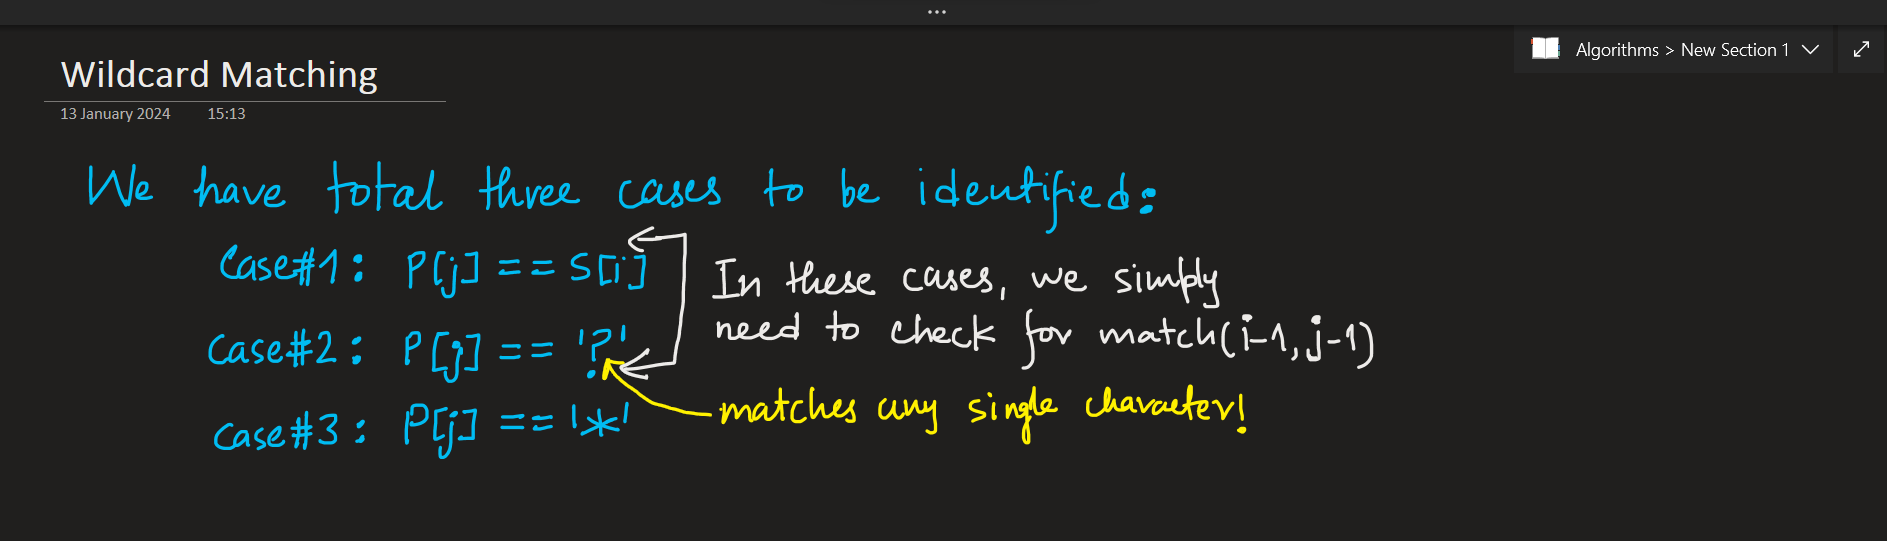 ...
Algorithms > New Section 1
Wildcard Matching
13 January 2024 15:13
We have total three cases to be identified:
Case#1: P[j] == S[i]
In these cases, we simply
need to check for match(i-1, j-1)
Case#2: P[j] == '?'
matches any single character!
Case#3: P[j] == '*'